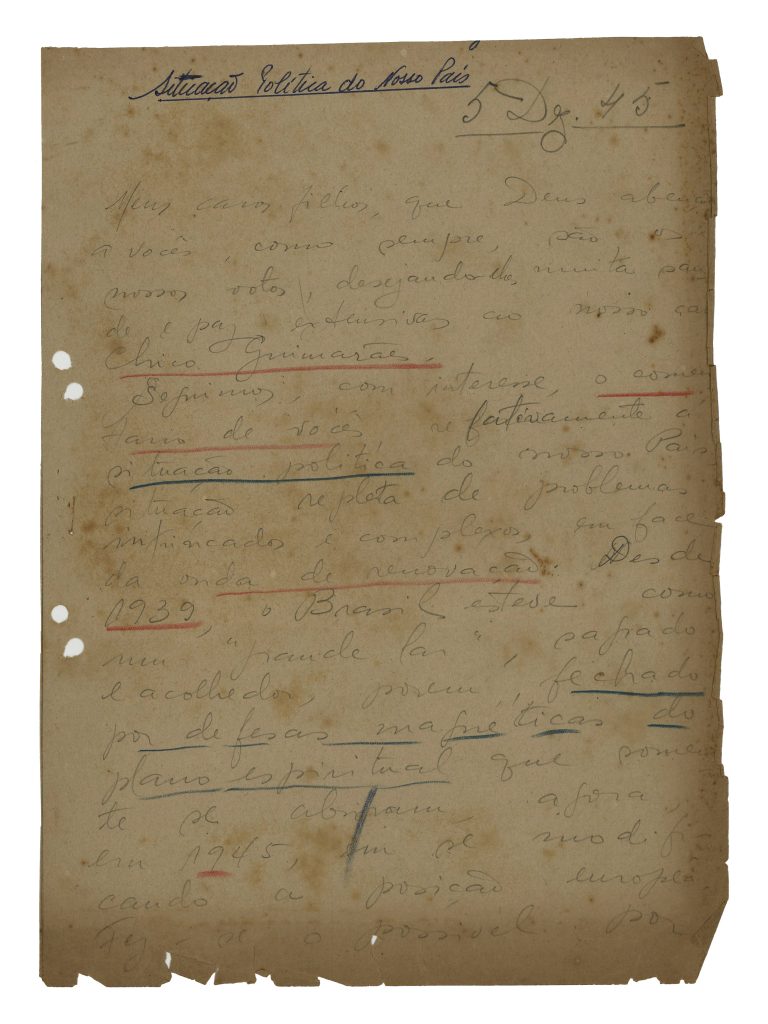 Situação Política do Nosso País
5 Dez. 45
Meus caros filhos, que Deus aben
a vocês, como sempre, são os
nossos votos, desejando-lhes muita saú
de e paz extensivas ao nosso ca
Chico Guimarães.
Seguimos, com interesse, o comen
tario de vocês relativamente á
situação politica do nosso Pais
situação repleta de problemas
intrincados e complexos, em face
da onda de renovação. Desde
1939, o Brasil esteve como
um "grande lar", sagrado
e acolhedor, porem, fechado
por defesas magnéticas do
plano espiritual que somen
te se abriram, agora,
em 1945, em se modifi
cando a posição européa.
Fez-se o possivel por